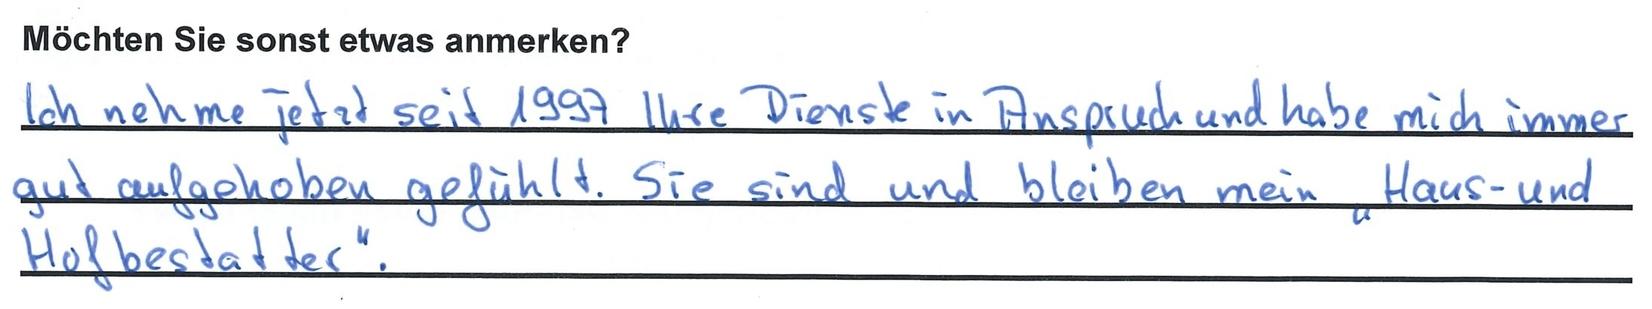 Möchten Sie sonst etwas anmerken?
Ich nehme jetzt seit 1997 Ihre Dienste in Anspruch und habe mich immer
gut aufgehoben gefühlt. Sie sind und bleiben mein „Haus- und
Hofbestatter“.